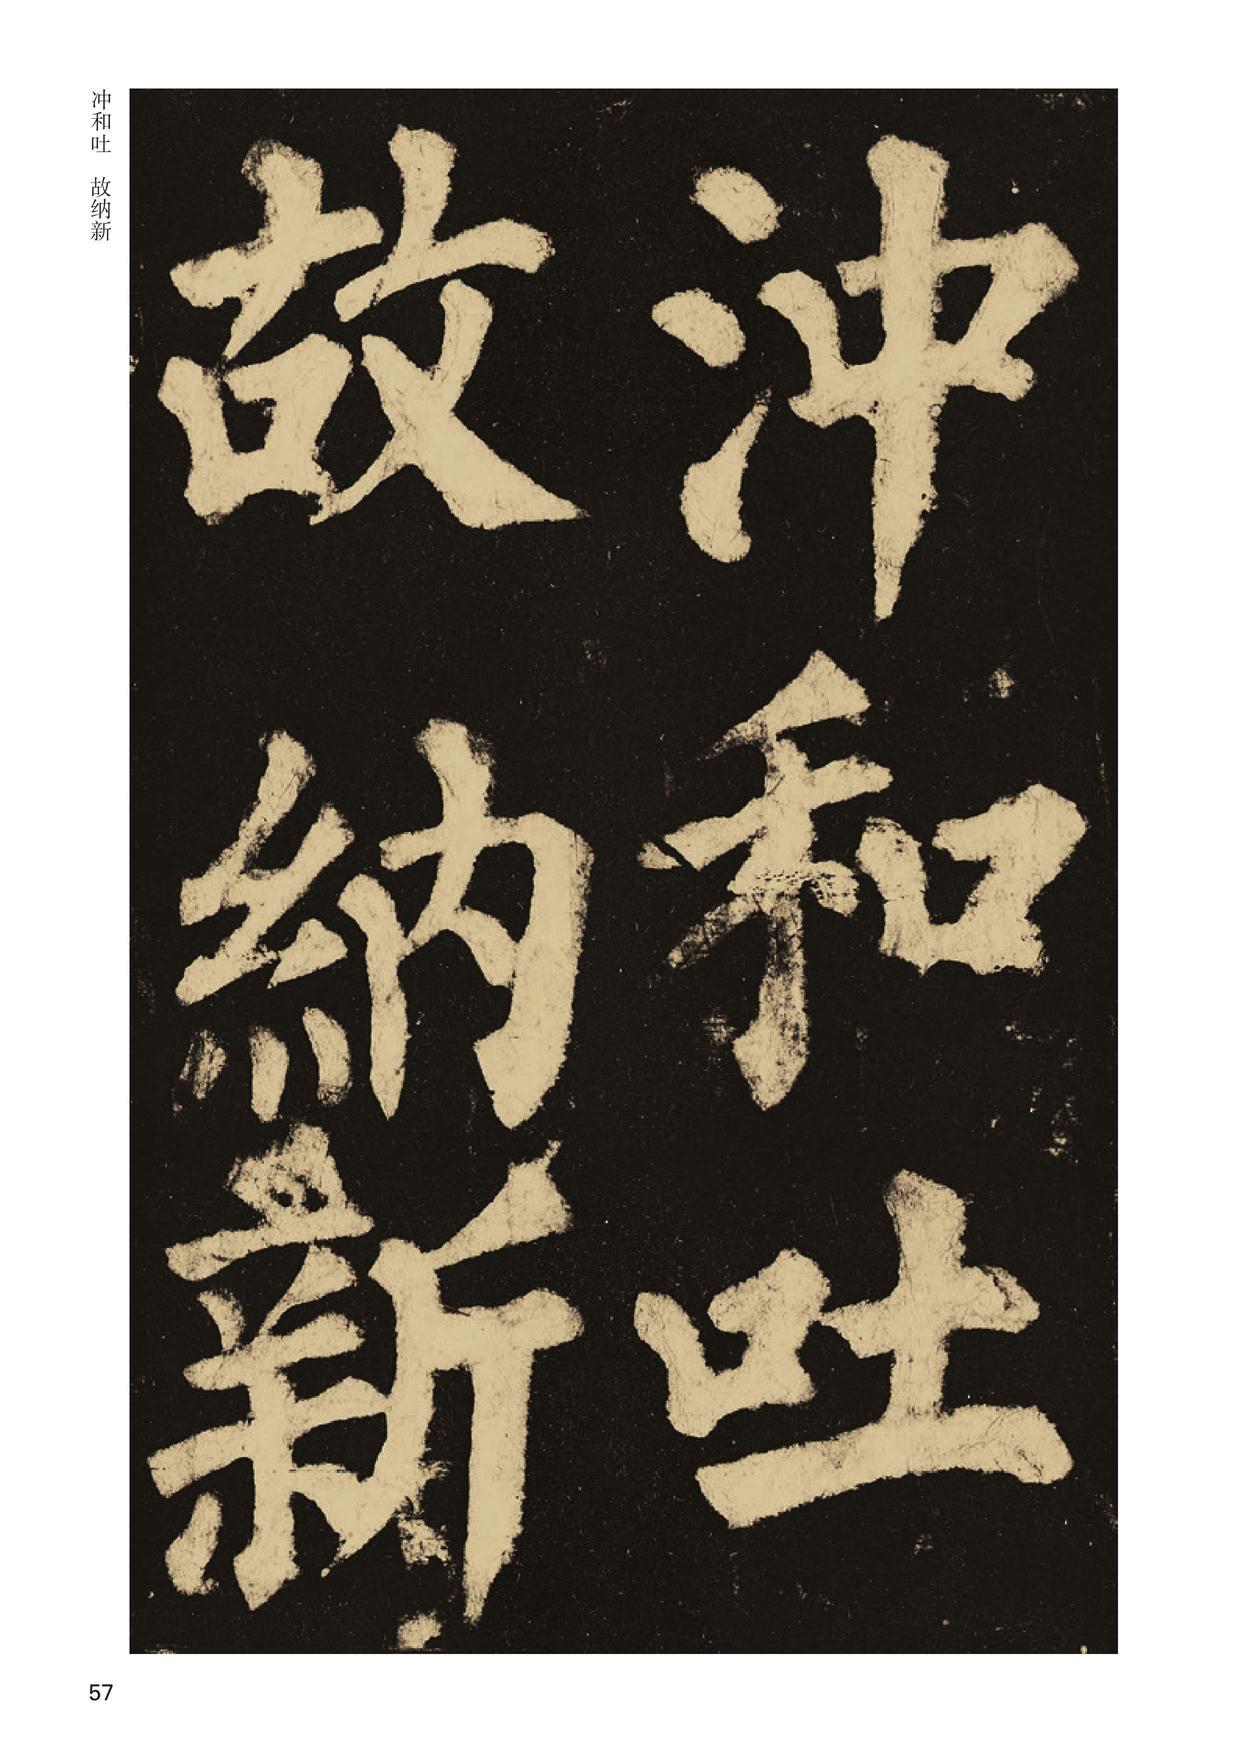 沖和吐
故納新
冲和吐 故纳新
57